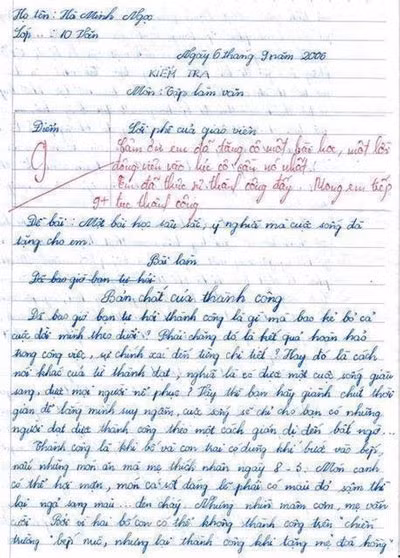 Họ tên: Hà Minh Ngọc
Lớp : 10 Văn
Ngày 6 tháng 9 năm 2006
KIỂM TRA
Môn: Tập làm văn
Điểm
Lời phê của giáo viên
9
Cảm ơn em đã tặng cô một bài học, một lời
động viên vào lúc cô cần nó nhất!
Em đã thực sự thành công đấy. Mong em tiếp
9+ tục thành công
Đề bài: Một bài học sâu sắc, ý nghĩa mà cuộc sống đã
tặng cho em.
Bài làm
Đã bao giờ bạn tự hỏi
Bản chất của thành công
Đã bao giờ bạn tự hỏi thành công là gì mà bao kẻ bỏ cả
cuộc đời mình theo đuổi? Phải chăng đó là kết quả hoàn hảo
trong công việc, sự chính xác đến từng chi tiết? Hay đó là cách
nói khác của từ thành đạt, nghĩa là có được một cuộc sống giàu
sang, được mọi người nể phục? Vậy thì bạn hãy giành chút thời
gian để lắng mình suy ngẫm, cuộc sống sẽ chỉ cho bạn có những
người đạt được thành công theo một cách giản dị đến bất ngờ...
Thành công là khi bố và con trai có dũng khí bước vào bếp,
nấu những món ăn mà mẹ thích nhân ngày 8 - 3. Món canh
có thể hơi mặn, món cá sốt đáng lẽ phải có màu đỏ sậm thì
lại ngả sang màu... đen cháy. Nhưng nhìn mâm cơm, mẹ vẫn
cười. Bởi vì hai bố con có thể không thành công trên chiến
trường "bếp núc, nhưng lại thành công khi tặng mẹ đoá hồng"